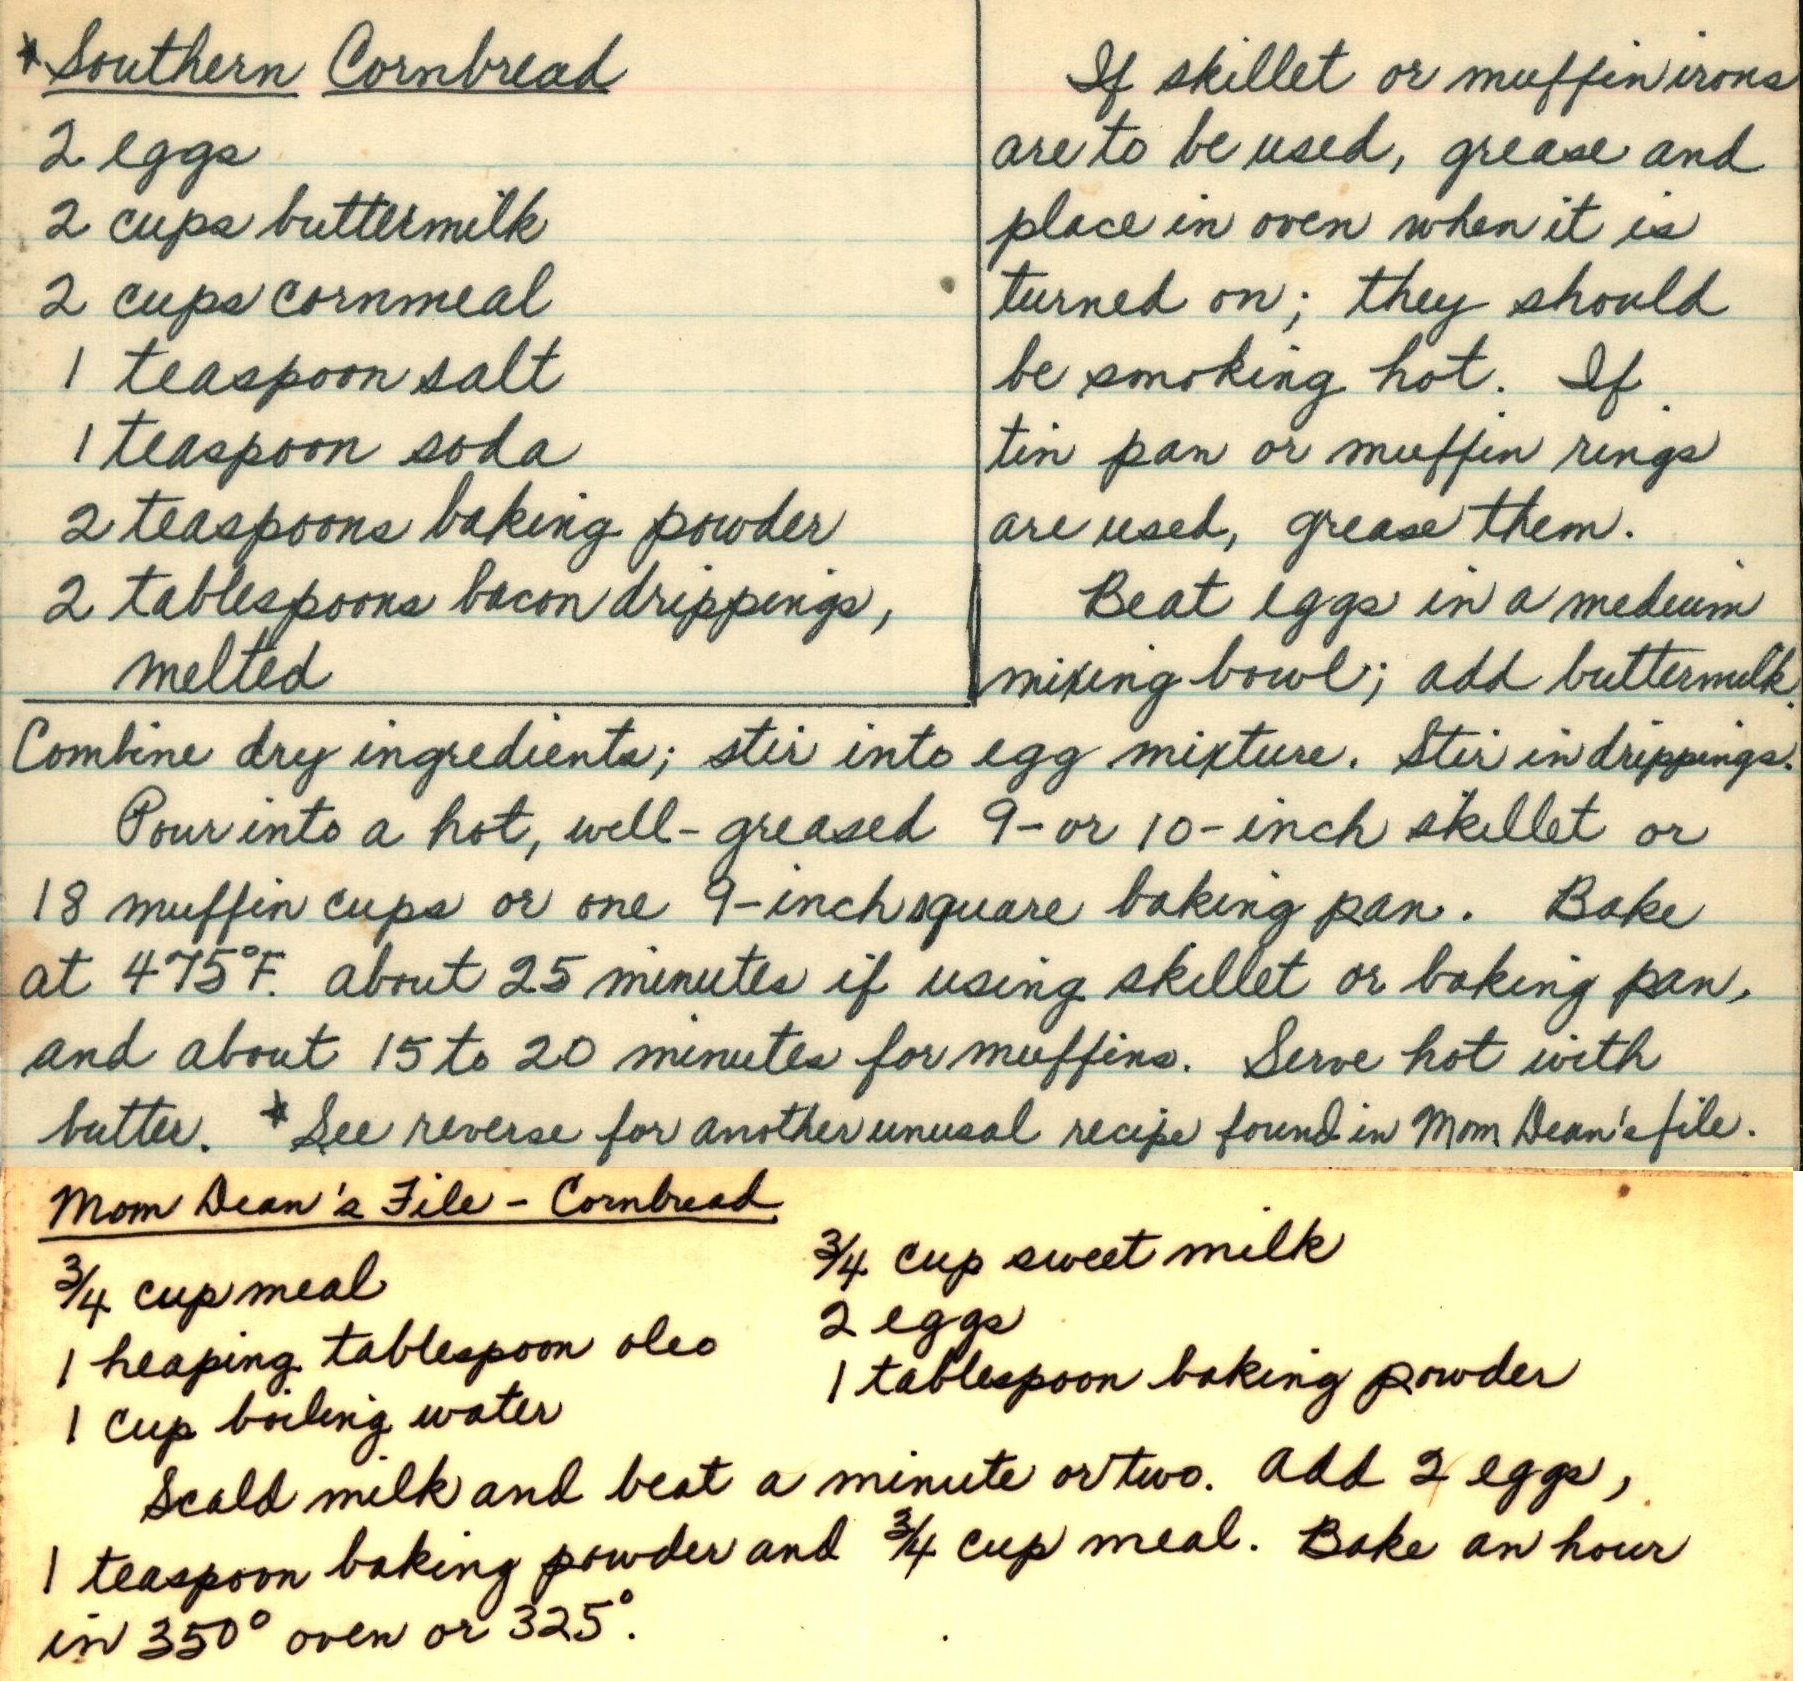 *Southern Cornbread
2 eggs
2 cups buttermilk
2 cups cornmeal
1 teaspoon salt
1 teaspoon soda
2 teaspoons baking powder
2 tablespoons bacon drippings,
melted
If skillet or muffin irons
are to be used, grease and
place in oven when it is
turned on; they should
be smoking hot. If
tin pan or muffin rings
are used, grease them.
Beat eggs in a medium
mixing bowl; add buttermilk.
Combine dry ingredients; stir into egg mixture. Stir in drippings.
Pour into a hot, well-greased 9- or 10-inch skillet or
18 muffin cups or one 9-inch square baking pan. Bake
at 475°F. about 25 minutes if using skillet or baking pan,
and about 15 to 20 minutes for muffins. Serve hot with
butter. *See reverse for another unusal recipe found in Mom Dean's file.
Mom Dean's File - Cornbread
3/4 cup meal
1 heaping tablespoon oleo
1 cup boiling water
3/4 cup sweet milk
2 eggs
1 tablespoon baking powder
Scald milk and beat a minute or two. Add 2 eggs,
1 teaspoon baking powder and 3/4 cup meal. Bake an hour
in 350° oven or 325°.